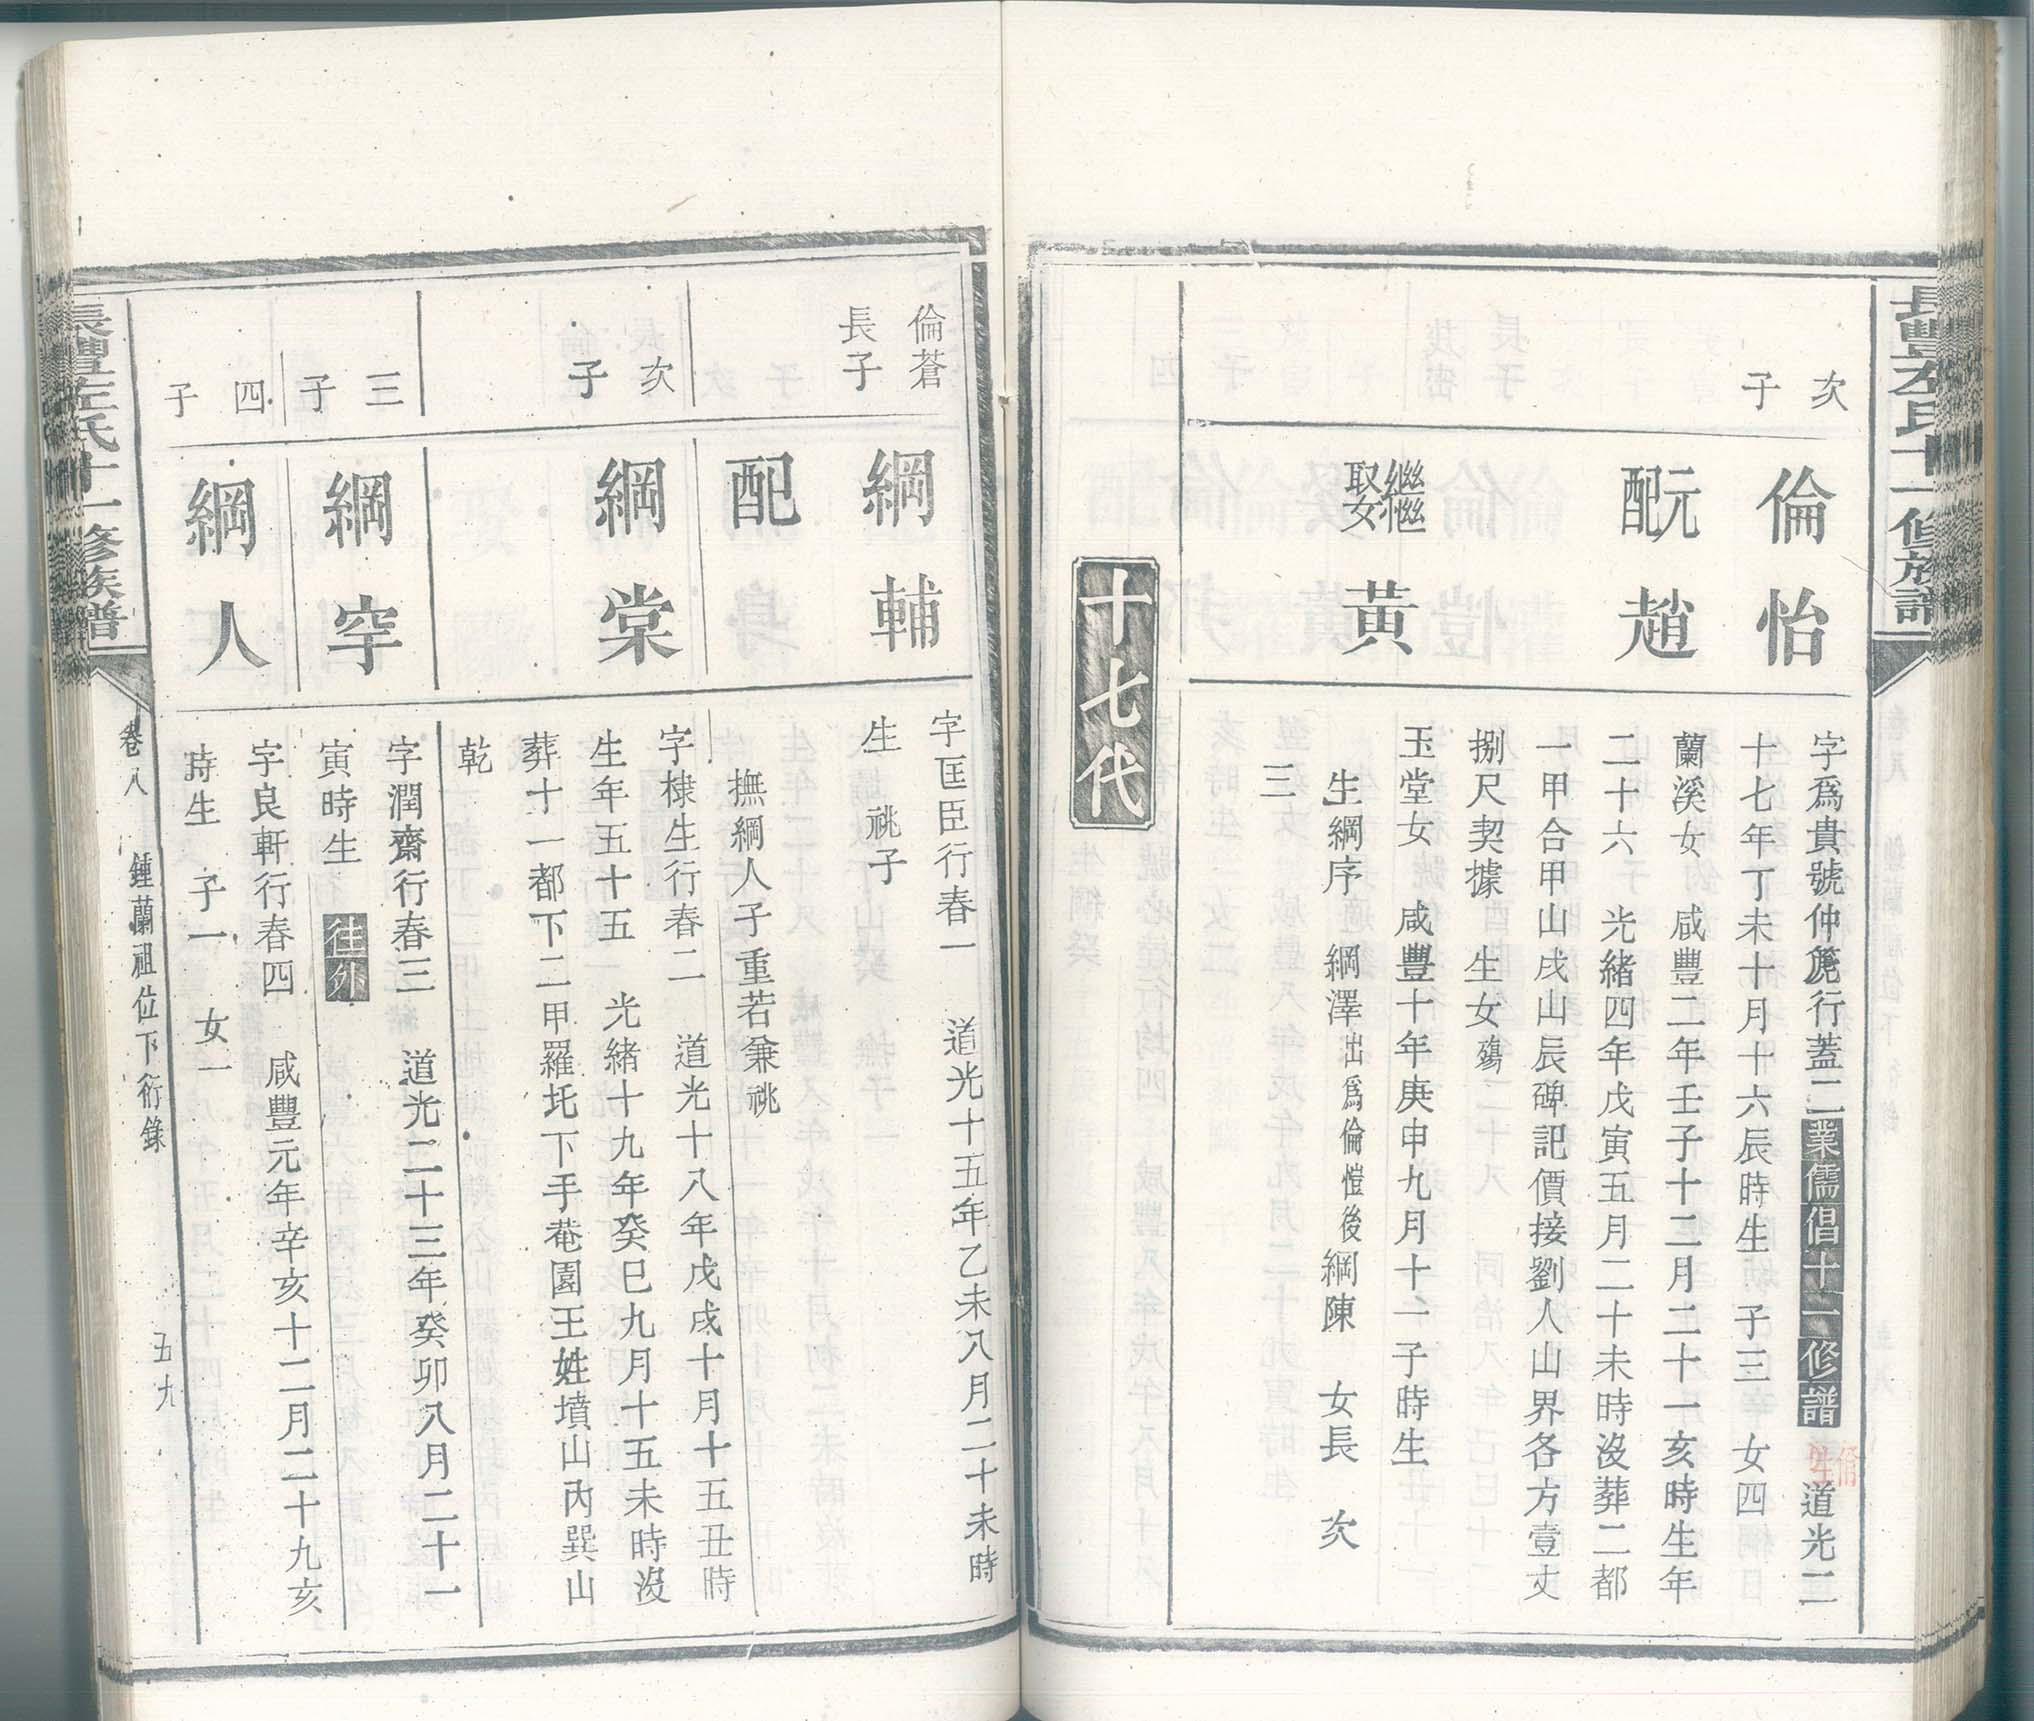 長豐左氏十一修族譜
次子
倫怡
字爲貴號仲箎行蓋二業儒倡十一修譜 道光二
十七年丁未十月十六辰時生 子三 女四
元配趙
蘭溪女 咸豐二年壬子十二月二十一亥時生年
二十六 光緒四年戊寅五月二十未時沒葬二都
一甲合甲山戌山辰碑記價接劉人山界各方壹丈
捌尺契據 生女殤
繼娶黃
玉堂女 咸豐十年庚申九月十一子時生
生綱序 綱澤出爲倫愷後綱陳 女長 次
三
十七代
倫蒼
長子
綱輔
字匡臣行春一 道光十五年乙未八月二十未時
生 祧子
配
撫綱人子重若兼祧
次子
綱棠
字棣生行春二 道光十八年戊戌十月十五丑時
生年五十五 光緒十九年癸巳九月十五未時沒
葬十一都下二甲羅圫下手菴園王姓墳山內巽山
乾
三子
綱罕
字潤齋行春三 道光二十三年癸卯八月二十一
寅時生 往外
四子
綱人
字良軒行春四 咸豐元年辛亥十二月二十九亥
時生 子一 女一
長豐左氏十一修族譜
卷八 鍾蘭祖位下衍錄 五九